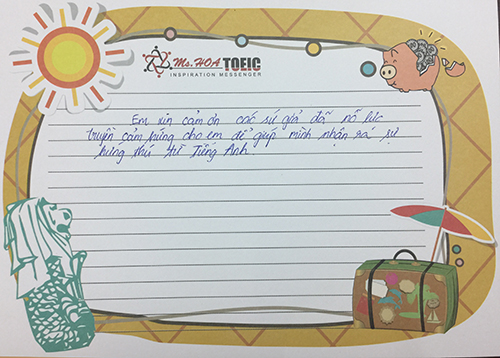 Ms.HOA TOEIC
INSPIRATION MESSENGER
Em xin cảm ơn các sứ giả đã nỗ lực
truyền cảm hứng cho em để giúp mình nhận ra sự
hứng thú từ Tiếng Anh.